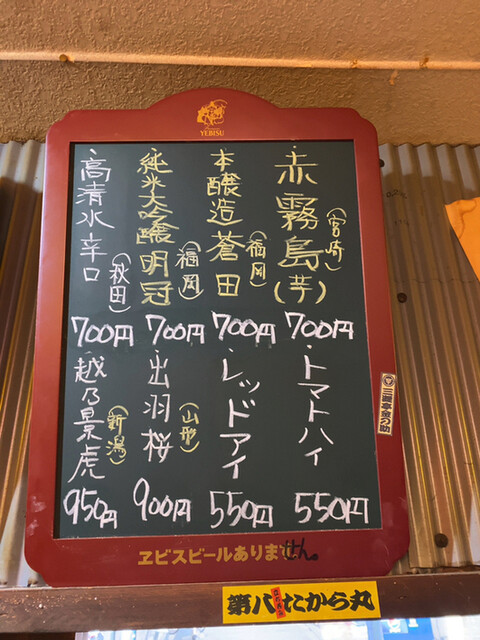 YEBISU
・赤霧島(芋)
(宮崎)
700円
・本醸造蒼田
(福岡)
700円
・純米大吟醸明冠
(福岡)
700円
・高清水辛口
(秋田)
700円
・トマトハイ
550円
・レッドアイ
550円
・出羽桜
(山形)
900円
・越乃景虎
(新潟)
950円
ヱビスビールありません。
第八たから丸